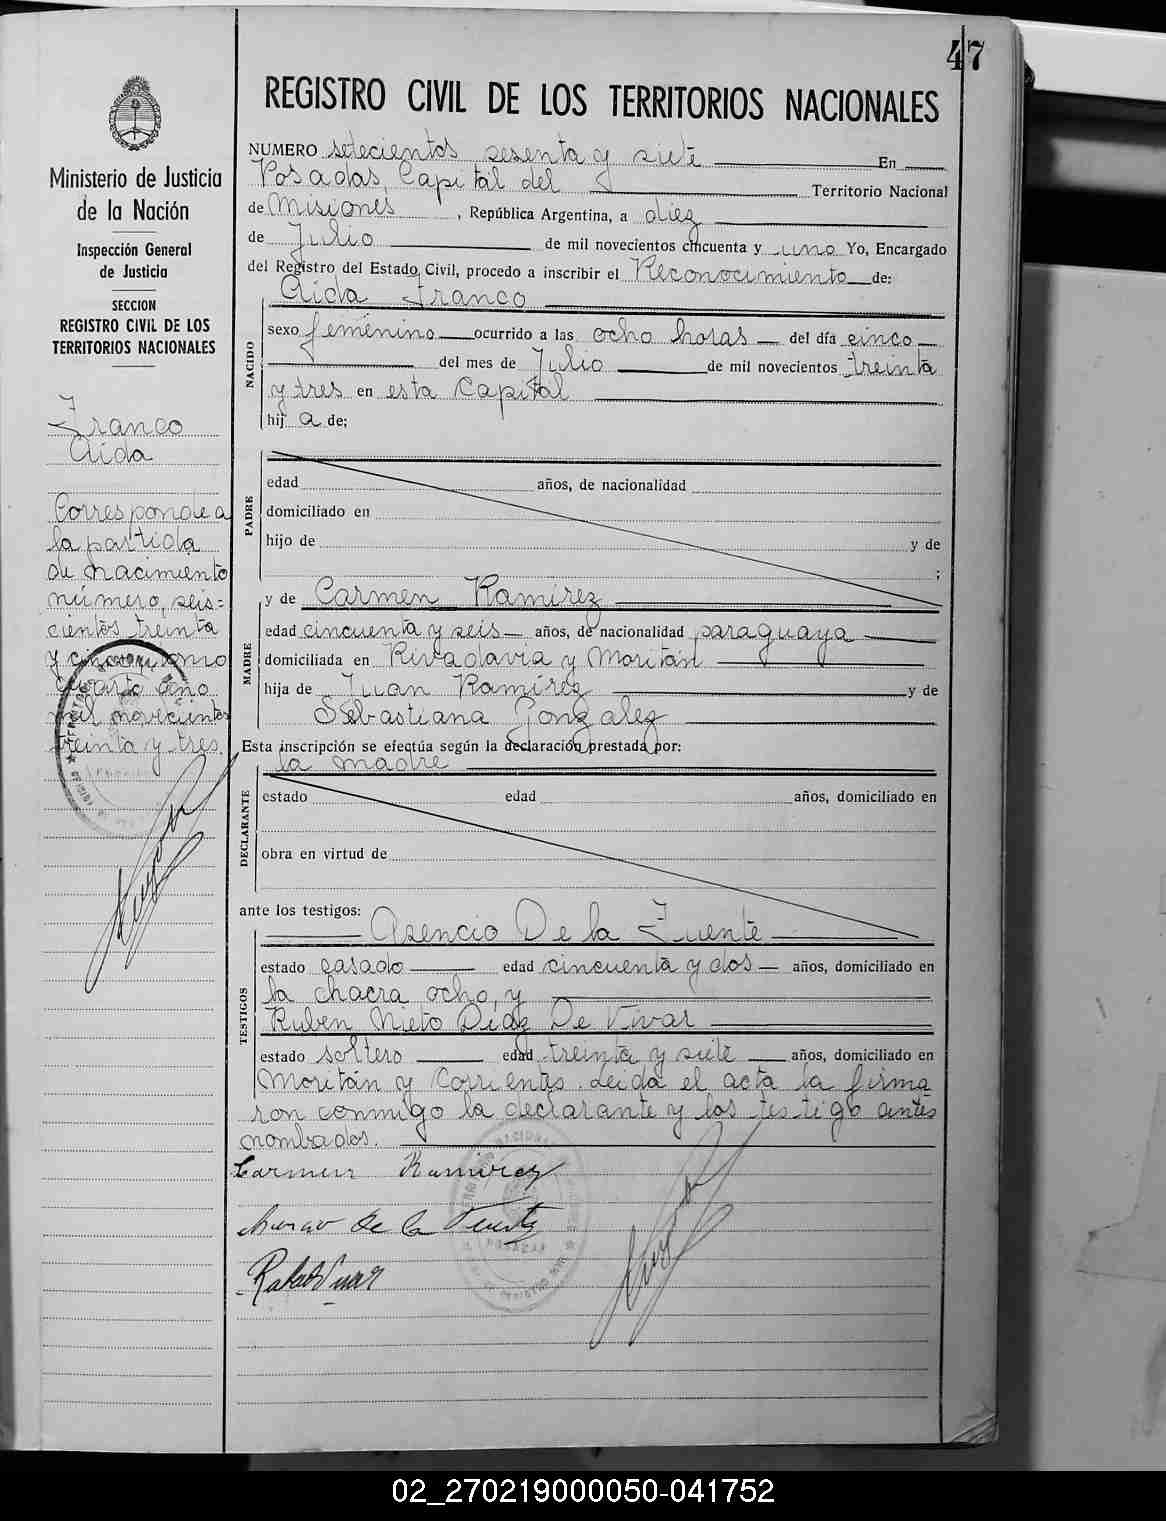 47
REGISTRO CIVIL DE LOS TERRITORIOS NACIONALES
Ministerio de Justicia
de la Nación
Inspección General
de Justicia
SECCION
REGISTRO CIVIL DE LOS
TERRITORIOS NACIONALES
Franco
Aida
Corresponde a
la partida
de nacimiento
número, seis=
cientos treinta
y cinco, tomo
cuarto año
mil novecientos
treinta y tres.
NUMERO setecientos sesenta y siete En
Posadas, Capital del Territorio Nacional
de Misiones, República Argentina, a diez
de Julio de mil novecientos cincuenta y uno Yo, Encargado
del Registro del Estado Civil, procedo a inscribir el Reconocimiento de:
Aida Franco
NACIDO
sexo femenino ocurrido a las ocho horas del día cinco
del mes de Julio de mil novecientos treinta
y tres en esta Capital
hij a de;
PADRE
edad años, de nacionalidad
domiciliado en
hijo de y de
;
y de Carmen Ramírez
MADRE
edad cincuenta y seis años, de nacionalidad paraguaya
domiciliada en Rivadavia y Moritán
hija de Juan Ramírez y de
Sebastiana González
Esta inscripción se efectúa según la declaración prestada por:
la madre
DECLARANTE
estado edad años, domiciliado en
obra en virtud de
ante los testigos:
Asencio De la Fuente
TESTIGOS
estado casado edad cincuenta y dos años, domiciliado en
la chacra ocho, y
Ruben Nieto Diaz De Vivar
estado soltero edad treinta y siete años, domiciliado en
Moritán y Corrientes. Leida el acta la firma
ron conmigo la declarante y los testigo antes
nombrados.
Carmen Ramirez
de la Fuente
POSADAS
02_270219000050-041752